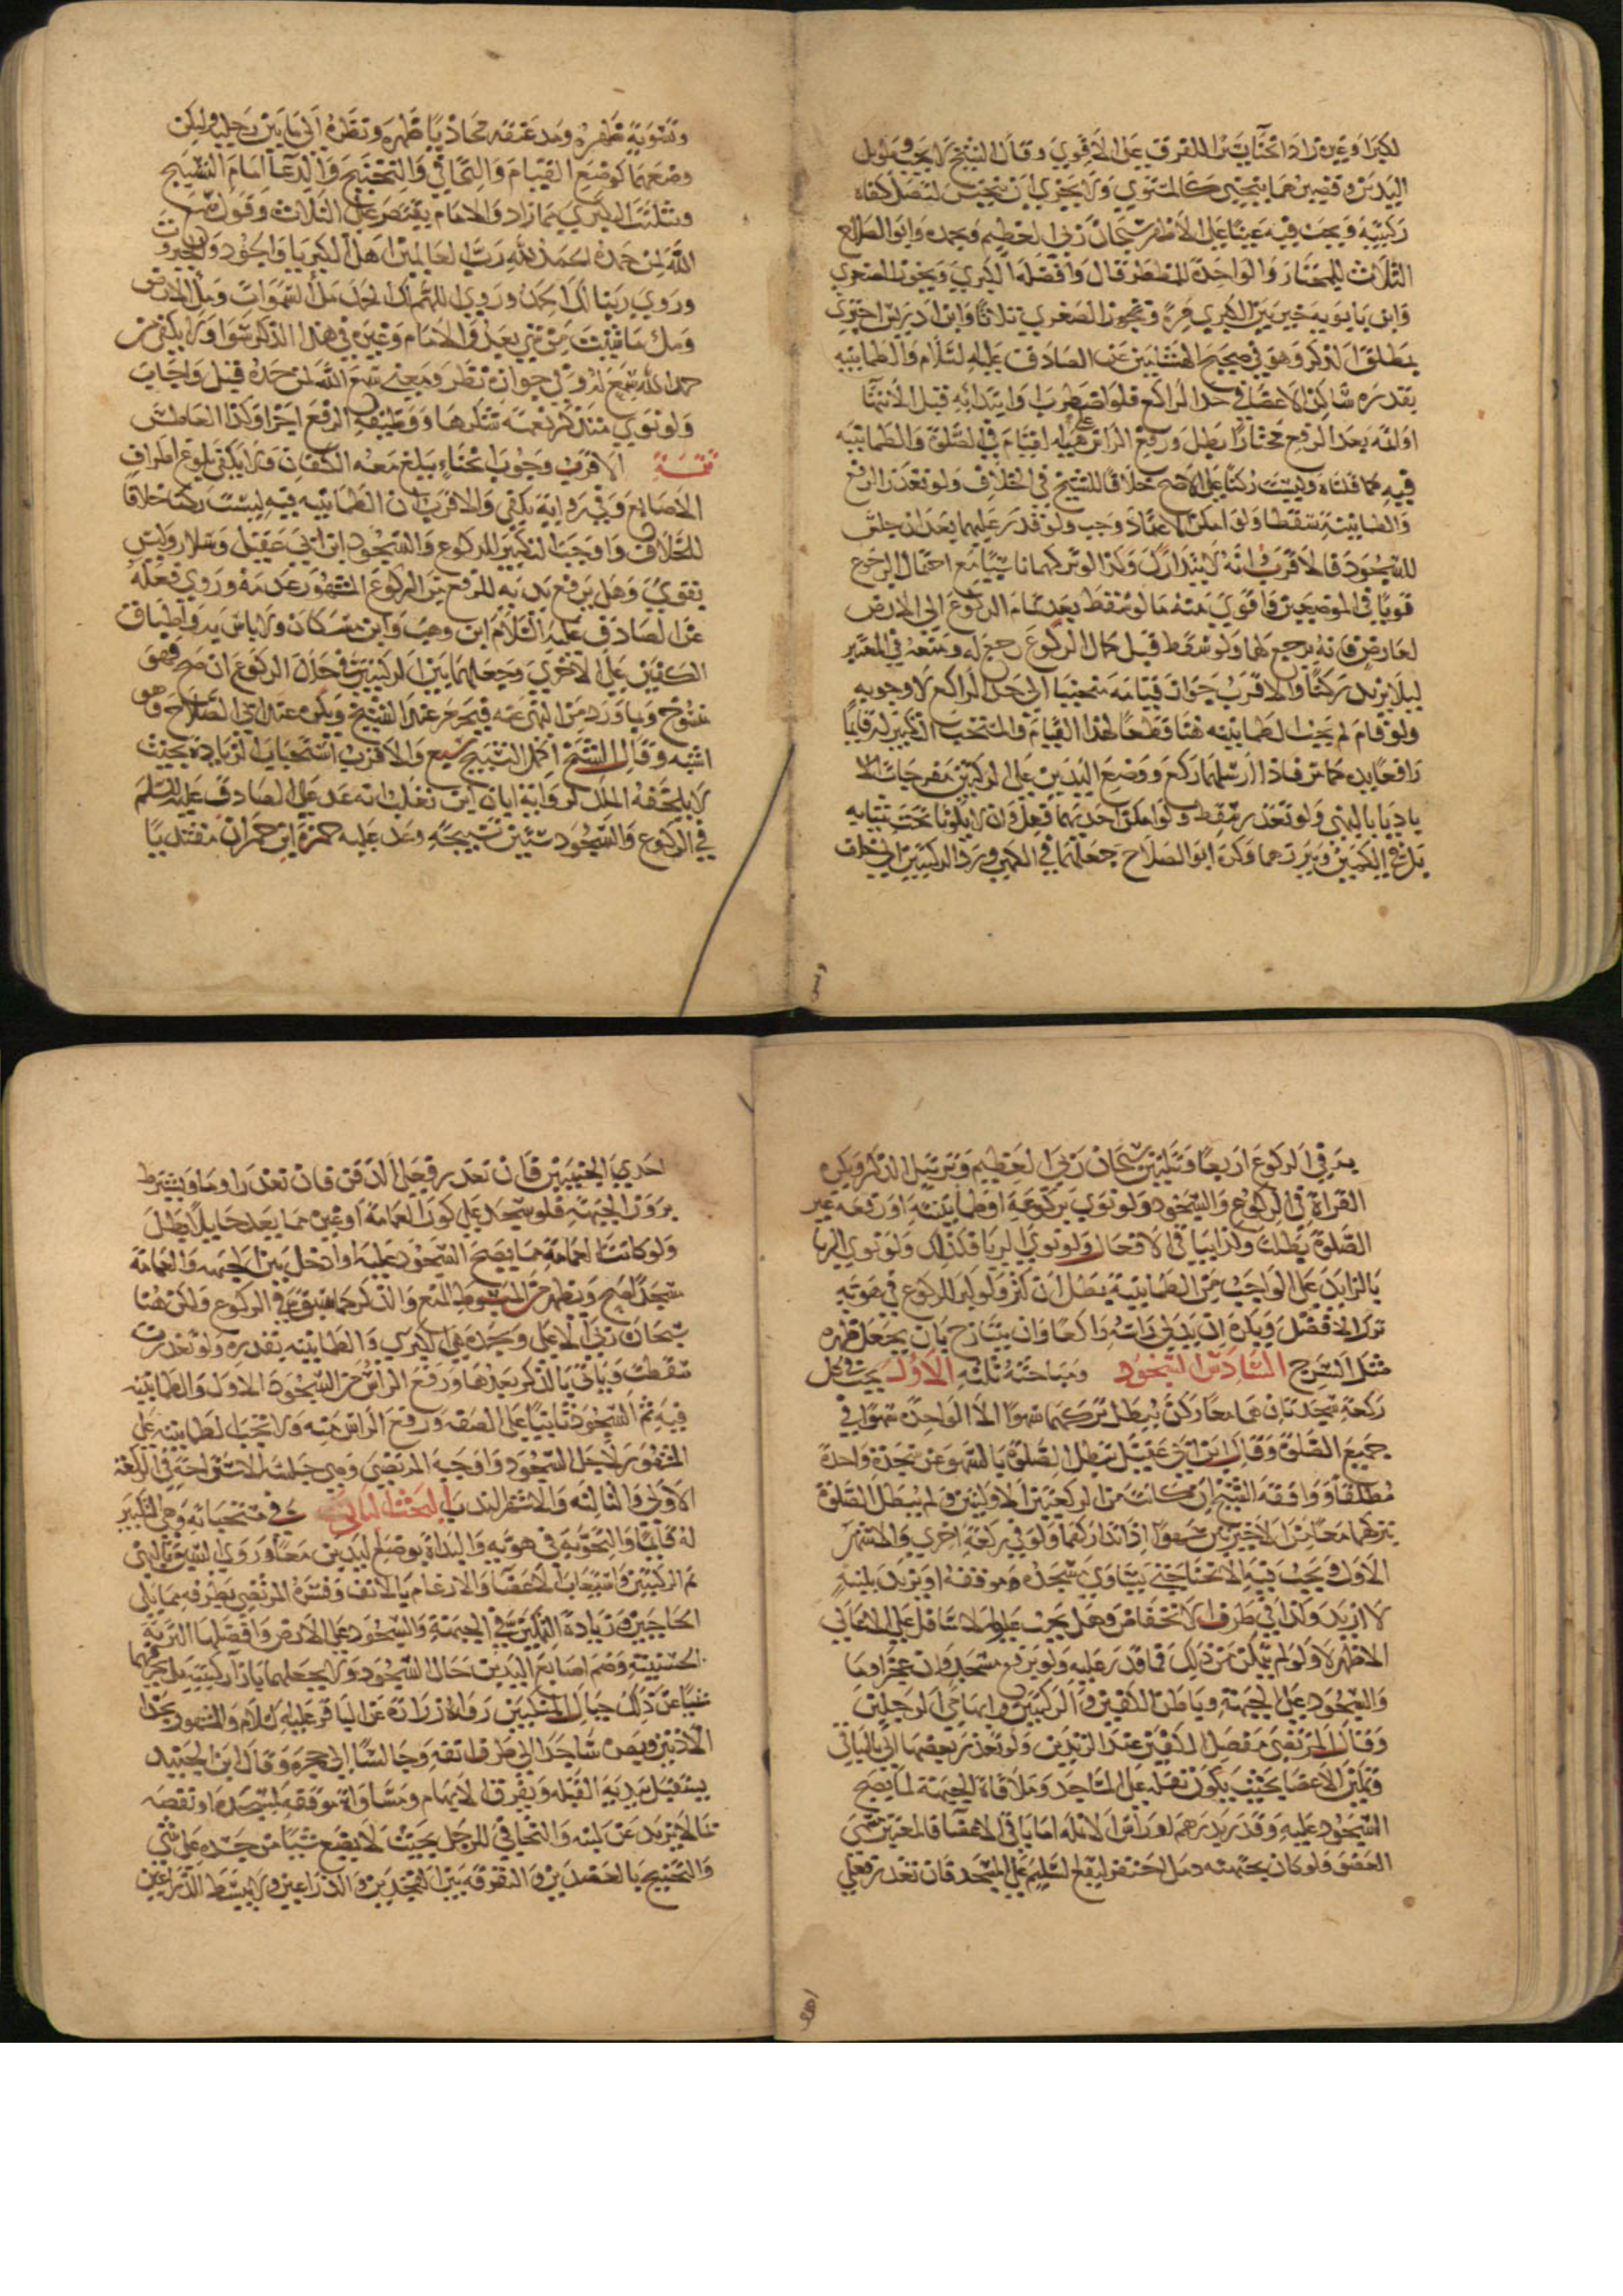 لكبر او غيره زاد انحناء يسيرا للفرق على الاقوى وقال الشيخ لا يجب وطويل
اليدين وقصيرهما ينحني كالمستوى ولا يجزى ان ينخنس لتصل كفاه
ركبتيه ويجب فيه عينا على الاظهر سبحان ربي العظيم وبحمده وابو الصلاح
الثلاث للمختار والواحدة للمضطر قال وافضله الكبرى ويجوز الصغرى
وابن بابويه خير بين الكبرى مرة وتجوز الصغرى ثلاثا وابن ادريس اجتزى
بمطلق الذكر وهو في صحيح الهشامين عن الصادق عليه السلام والطمانينه
بقدره ساكن الاعضاء في حد الراكع فلو اضطرب او ابتدا به قبل الانتهاء
او اتمه بعد الرفع مختارا بطل ورفع الراس منه
فيه مما قلناه وليست ركنا على الاصح خلافا للشيخ في الخلاف ولو تعذر الرفع
والطمانينة سقطا ولو امكن الاعتماد وجب ولو قدر عليهما بعد ان جلس
للسجود فالاقرب انه لا يتدارك وكذا لو تركهما ناسيا مع احتمال الرجوع
قويا في الموضعين واقوى منه ما لو سقط بعد تمام الركوع الى الارض
لعارض فانه يرجع لها ولو سقط قبل كمال الركوع رجع له ومنعه في المعتبر
ليلا يزيد ركنا والاقرب جواز قيامه منحنيا الى حد الراكع لا وجوبه
ولو قام لم يجب الطمانينه هنا قطعا لهذا القيام والمستحب التكبير له قايما
رافعا يديه كما مر فاذا ارسلهما ركع ووضع اليدين على الركبتين مفرجات الاصابع
باديا باليمنى ولو تعذر سقط ولو امكن احديهما فعل وان لا يكونا تحت ثيابه
بل في الكمين ويبرزهما وكره ابو الصلاح جعلهما في الكمين ورد الركبتين الى خلف
وتسوية ظهره ومد عنقه محاذيا ظهره ونظره الى ما بين رجليه وليكن
وضعهما كوضع القيام والتجافي والتجنيح والدعاء امام التسبيح
وتثليث الكبرى فما زاد والامام يقتصر على الثلاث وقول سمع
الله لمن حمده الحمد لله رب العالمين اهل الكبريا والجود والجبروت
وروى ربنا لك الحمد وروى اللهم لك الحمد ملأ السموات وملأ الارض
وملأ ما شئت من شئ بعد والامام وغيره في هذا الذكر سوا ولا يكفي من
حمد الله سمع له وفي جوازه نظر ومعنى سمع الله لمن حمده قبل واجاب
ولو نوى متذكر نعمة شكرها ووظيفه الرفع اجزا وكذا العاطس
تتمة الاقرب وجوب انحناء يبلغ معه الكفان ولا يكفي بلوغ اطراف
الاصابع وفي رواية يكفي والاقرب ان الطمانينه فيه ليست ركنا خلافا
للخلاف واوجب التكبير للركوع والسجود ابن ابي عقيل وسلار وليس
بقوى وهل يرفع يديه للرفع من الركوع المشهور عدمه وروى فعله
عن الصادق عليه السلام ابن وهب وابن مسكان ولا باس به واطباق
الكفين على الاخرى وجعلهما بين الركبتين في خلال الركوع ان صح فهو
منسوخ وبها ورد من النهي عنه فيحرم عند الشيخ ويكره عند ابي الصلاح وهو
اشبه وقال الشيخ اكمل التسبيح سبع والاقرب استحباب الزيادة بحيث
لا يلحقه الملل لرواية ابان ابن تغلب انه عد على الصادق عليه السلم
في الركوع والسجود ستين تسبيحة وعد عليه حمزة ابن حمران مقتديا
به في الركوع اربعا وثلثين سبحان ربي العظيم وترتيل الذكر ويكره
القراة في الركوع والسجود ولو نوى بركوعه او طمانينته او رفعه غير
الصلوة بطلت وكذا الريا في الافعال ولو نوى الريا فكذلك ولو نوى الريا
بالزايد على الواجب من الطمانينة بطل ان كثر ولو كبر للركوع في هويه
ترك الافضل ويكره ان يدلى راسه راكعا وان يتبازخ بان يجعل ظهره
مثل السرج السادس السجود ومباحثه ثلثه الاول يجب في كل
ركعة سجدتان هما معا ركن تبطل بتركهما سهوا لا الواحدة سهوا في
جميع الصلوة وقال ابن ابي عقيل تبطل الصلوة بالسهو عن سجدة واحدة
مطلقا ووافقه الشيخ ان كانت من الركعتين الاوليتين ولم يبطل الصلوة
بتركهما معا من الاخيرتين سهوا اذا تداركهما ولو في ركعة اخرى والاشهر
الاول ويجب فيه الانحنا حتى يساوى مسجده موقفه او يزيد بلبنة
لا ازيد وكذا في طرف الانخفاض وهل يجب على العاجز
الاظهر لا ولو لم يتمكن من ذلك فما قدر عليه ولو برفع مسجد وان عجز اوما
والسجود على الجبهة وباطن الكفين والركبتين وابهامي الرجلين
وقال المرتضى مفصل الكفين عند الزندين ولو تعذر بعضها اتى بالباقي
وتمكين الاعضا بحيث يكون ثقله على المساجد وملاقاة الجبهة لما يصح
السجود عليه وقدر بدرهم او راس الانمله اما باقي الاعضا فالمعتبر مسمى
العضو ولو كان بجبهته دمل احتفر ليقع السليم على المسجد فان تعذر فعلى
احدى الجبينين فان تعذر فعلى الذقن فان تعذر اوما ويشترط
بروز الجبهة فلو سجد على كور العمامة او غيره مما يعد حايلا بطل
ولو كانت العمامة مما يصح السجود عليه او ادخل بين الجبهه والعمامة
مسجدا صح ويظهر من المبسوط المنع والذكر كما سبق في الركوع ولكن هنا
سبحان ربي الاعلى وبحمده في الكبرى والطمانينه بقدره ولو تعذرت
سقطت وياتي بالذكر بعدها ورفع الراس من السجود الاول والطمانينه
فيه ثم السجود ثانيا على الصفه ورفع الراس منه ولا تجب الطمانينه على
المشهور لاجل السجود واوجبه المرتضى وهي جلسة الاستراحة في الركعة
الاولى والثالثه والاشهر الندب البحث الثاني في مستحباته وهي التكبير
له قايما والتخوية في هويه والبداة بوضع اليدين معا وروى السبق باليمنى
ثم الركبتين واستيعاب الاعضا والارغام بالانف وفسره المرتضى بطرفه مما يلي
الحاجبين وزيادة التمكين في الجبهة والسجود على الارض وافضلها التربة
الحسينية وضم اصابع اليدين حال السجود ولا يجعلهما بازاء ركبتيه بل يحرفهما
شيئا عن ذلك حيال المنكبين رواه زرارة عن الباقر عليه السلام والمشهور بحذا
الاذنين وبصره ساجدا الى طرف انفه وجالسا الى حجره وقال ابن الجنيد
يستقبل بيديه القبله ويفرق الابهام ومساواة موقفه لمسجده او نقصه
بما لا يزيد عن لبنه والتجافي للرجل بحيث لا يضع شيئا من جسده على شئ
والتجنيح بالعضدين والتفرقه بين الفخذين والذراعين ولا يبسط الذراعين